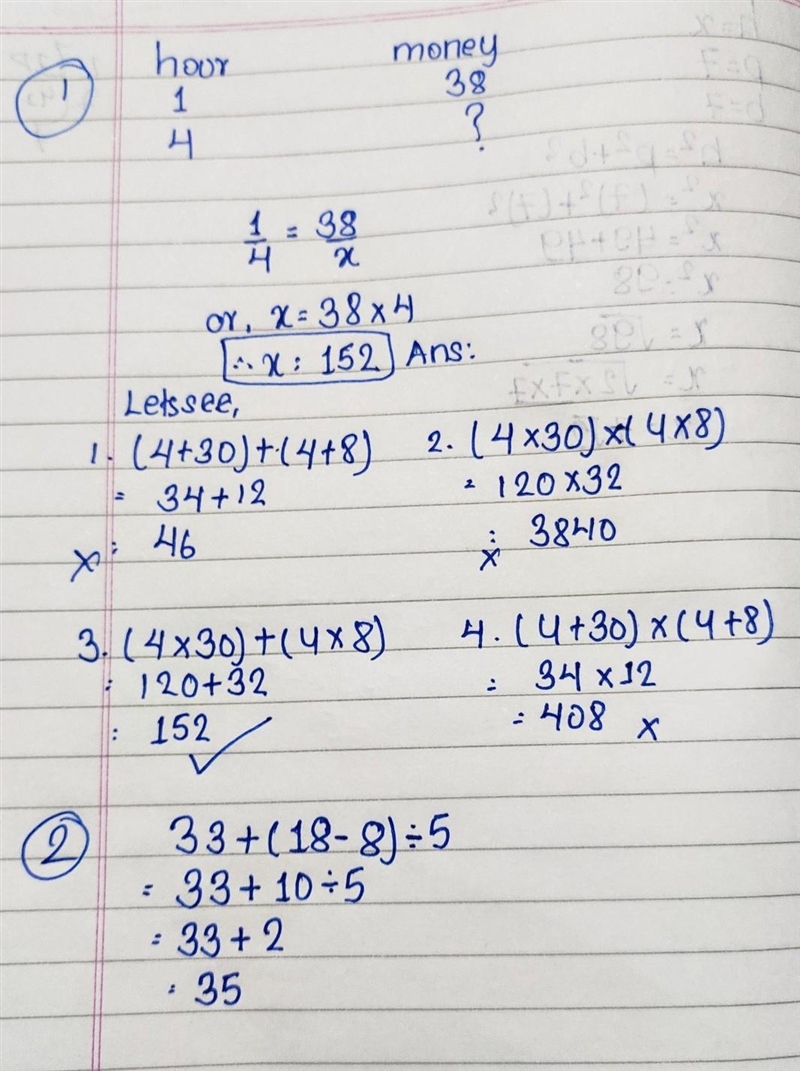 1
hour money
1 38
4 ?
1/4 = 38/x
or, x = 38 x 4
∴ x = 152 Ans:
Letssee,
1. (4+30)+(4+8)
= 34+12
x = 46
2. (4×30)×(4×8)
= 120×32
= 3840
x
3. (4×30)+(4×8)
= 120+32
= 152 ✓
4. (4+30)×(4+8)
= 34×12
= 408 x
2
33+(18-8)÷5
= 33+10÷5
= 33+2
= 35